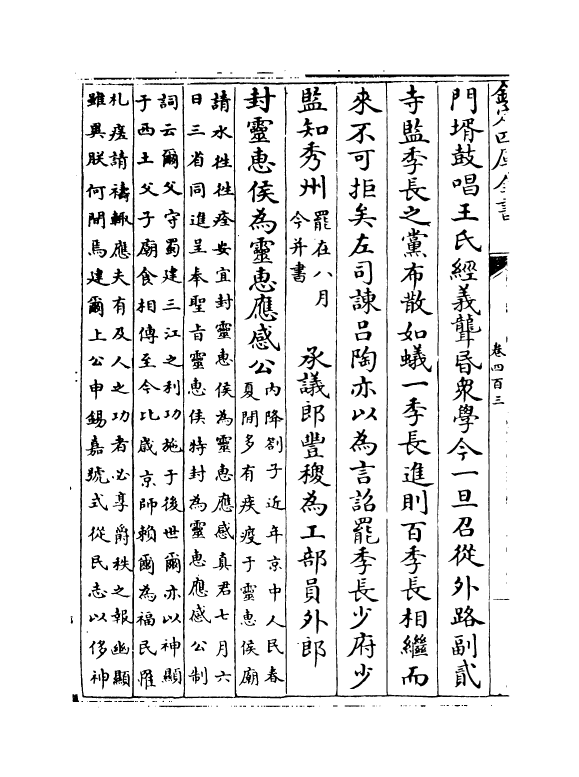 欽定四庫全書
卷四百三
門壻鼓唱王氏經義聾昏衆學今一旦召從外路副貳
寺監季長之黨布散如蟻一季長進則百季長相繼而
來不可拒矣左司諫呂陶亦以為言詔罷季長少府少
監知秀州
罷在八月
今并書
承議郎豐稷為工部員外郎
封靈惠侯為靈惠應感公
內降劄子近年京中人民春
夏間多有疾疫于靈惠侯廟
請水徃徃痊安宜封靈惠侯為靈惠應感真君七月六
日三省同進呈奉聖旨靈惠侯特封為靈惠應感公制
詞云爾父守蜀建三江之利功施于後世爾亦以神顯
于西土父子廟食相傳至今比歲京師賴爾為福民罹
札瘥請禱輒應夫有及人之功者必享爵秩之報幽顯
雖異朕何間焉建爾上公申錫嘉號式從民志以侈神